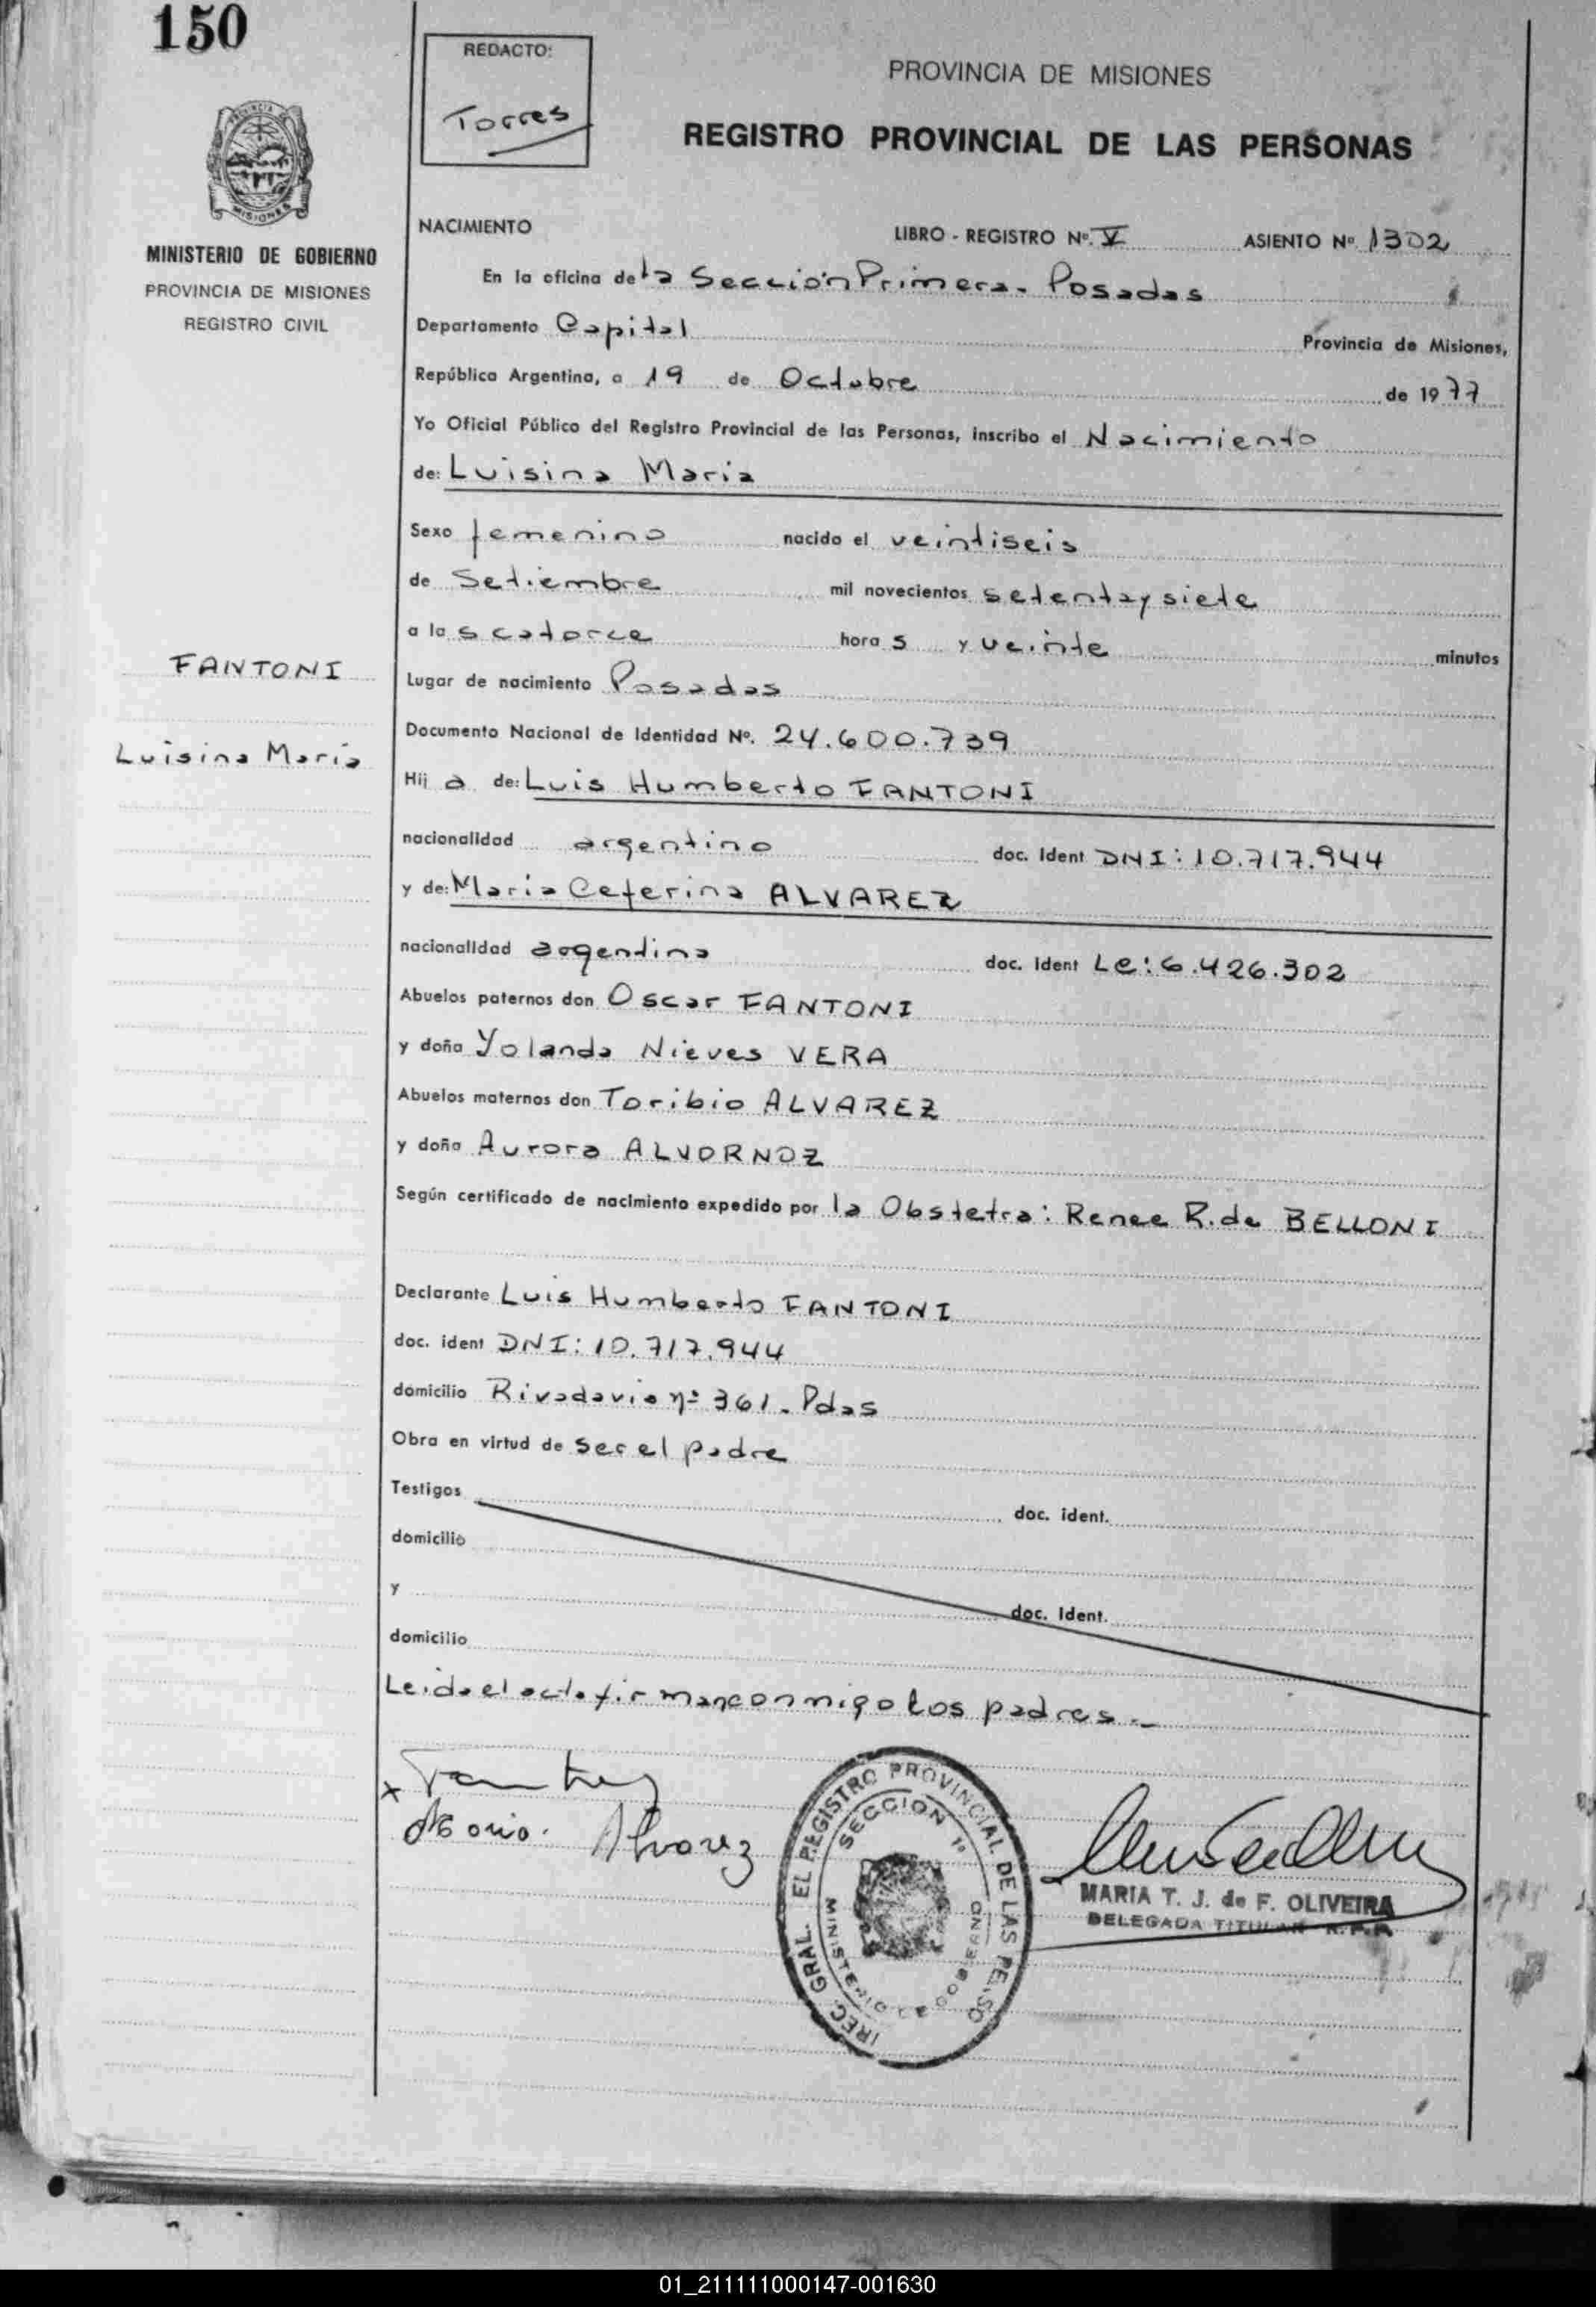 150
REDACTO:
Torres
PROVINCIA DE MISIONES
REGISTRO PROVINCIAL DE LAS PERSONAS
PROVINCIA
MISIONES
MINISTERIO DE GOBIERNO
PROVINCIA DE MISIONES
REGISTRO CIVIL
NACIMIENTO LIBRO - REGISTRO Nº. V ASIENTO Nº 1302
En la oficina de la Sección Primera. Posadas
Departamento Capital Provincia de Misiones,
República Argentina, a 19 de Octubre de 1977
Yo Oficial Público del Registro Provincial de las Personas, inscribo el Nacimiento
de: Luisina Maria
Sexo femenino nacido el veintiseis
de Setiembre mil novecientos setenta y siete
a las catorce horas y veinte minutos
FANTONI
Lugar de nacimiento Posadas
Luisina Maria
Documento Nacional de Identidad Nº. 24.600.739
Hija de: Luis Humberto FANTONI
nacionalidad argentino doc. Ident DNI: 10.717.944
y de: Maria Ceferina ALVAREZ
nacionalidad argentina doc. Ident Le: 6.426.302
Abuelos paternos don Oscar FANTONI
y doña Yolanda Nieves VERA
Abuelos maternos don Toribio ALVAREZ
y doña Aurora ALVORNOZ
Según certificado de nacimiento expedido por la Obstetra: Renee R. de BELLONI
Declarante Luis Humberto FANTONI
doc. ident DNI: 10.717.944
domicilio Rivadavia nº 361. Pdas
Obra en virtud de ser el padre
Testigos doc. ident.
domicilio
y doc. Ident.
domicilio
Leida el acta firman conmigo los padres.-
x
Maria Alvarez
IREC. GRAL. EL REGISTRO PROVINCIAL DE LAS PE
SECCION 1ª
MINISTERIO DE GOBIERNO
MARIA T. J. de F. OLIVEIRA
DELEGADA TITULAR R.P.P.
01_211111000147-001630